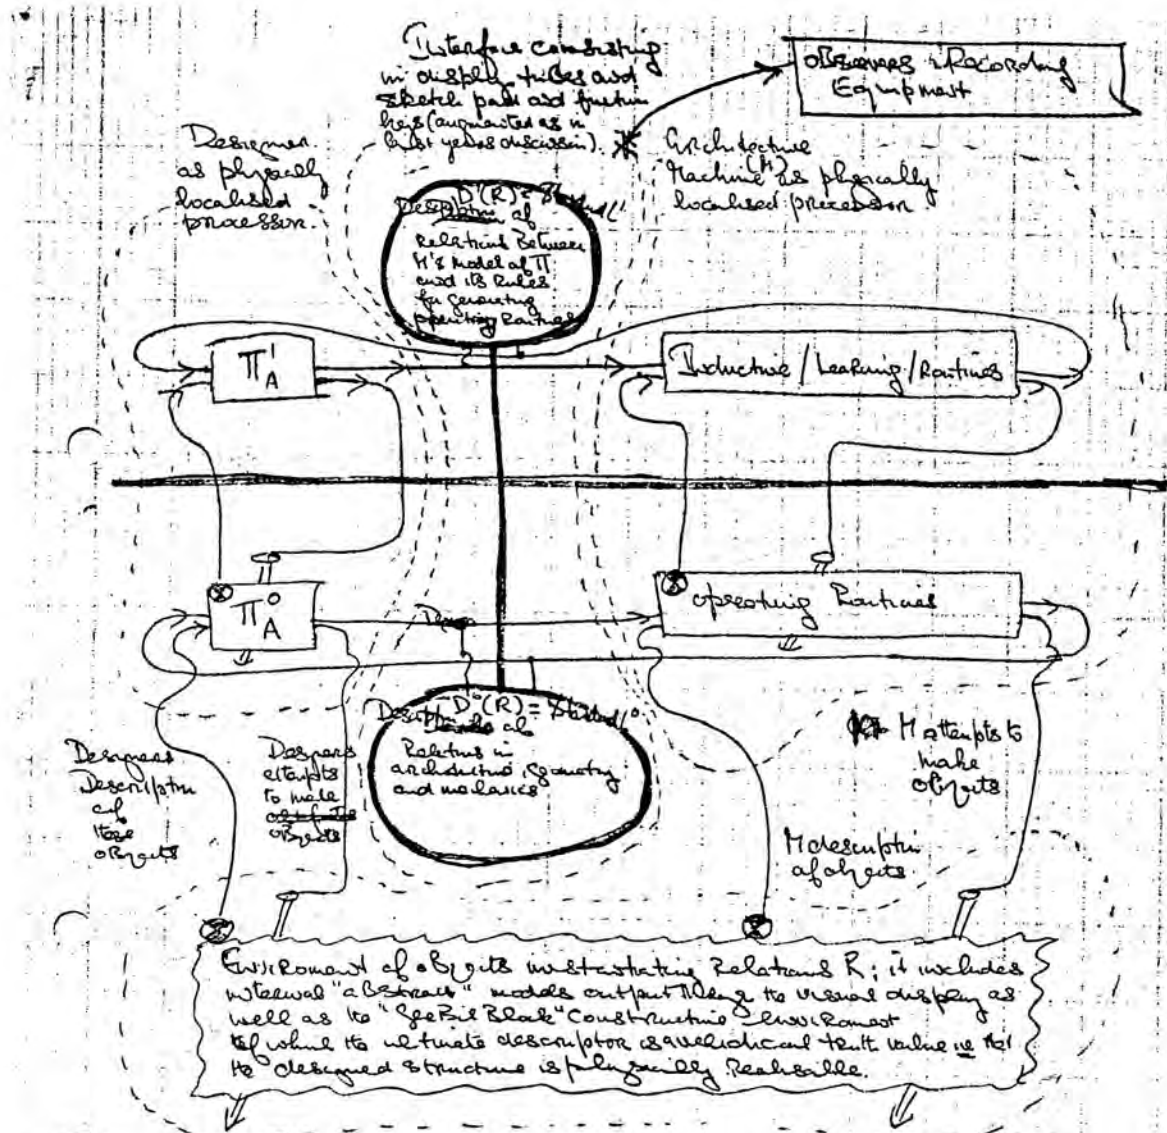 Interface consisting
in display tubes and
sketch pads and function
keys (augmented as in
last years discussion).
Observers + Recording
Equipment
Designer
as physically
localised
processor.
Architecture
Machine (M) as physically
localised processor.
D'(R) =
Description of
Relations Between
M's Model of Π
and its Rules
for generating
operating Routines
Π¹A
Inductive / Learning / Routines
Π⁰A
Operating Routines
D⁰(R) =
Description of
Relations in
architecture, geometry
and mechanics
Designers
Description
of
these
objects
Designers
attempts
to make
objects
M attempts to
make
objects
M description
of objects
Enviroment of objects instantiating Relations R; it includes
internal "abstract" models output along the visual display as
well as the "Constructive enviroment
of which the ultimate descriptor is a veridical truth value ie that
the designed structure is physically Realisable.